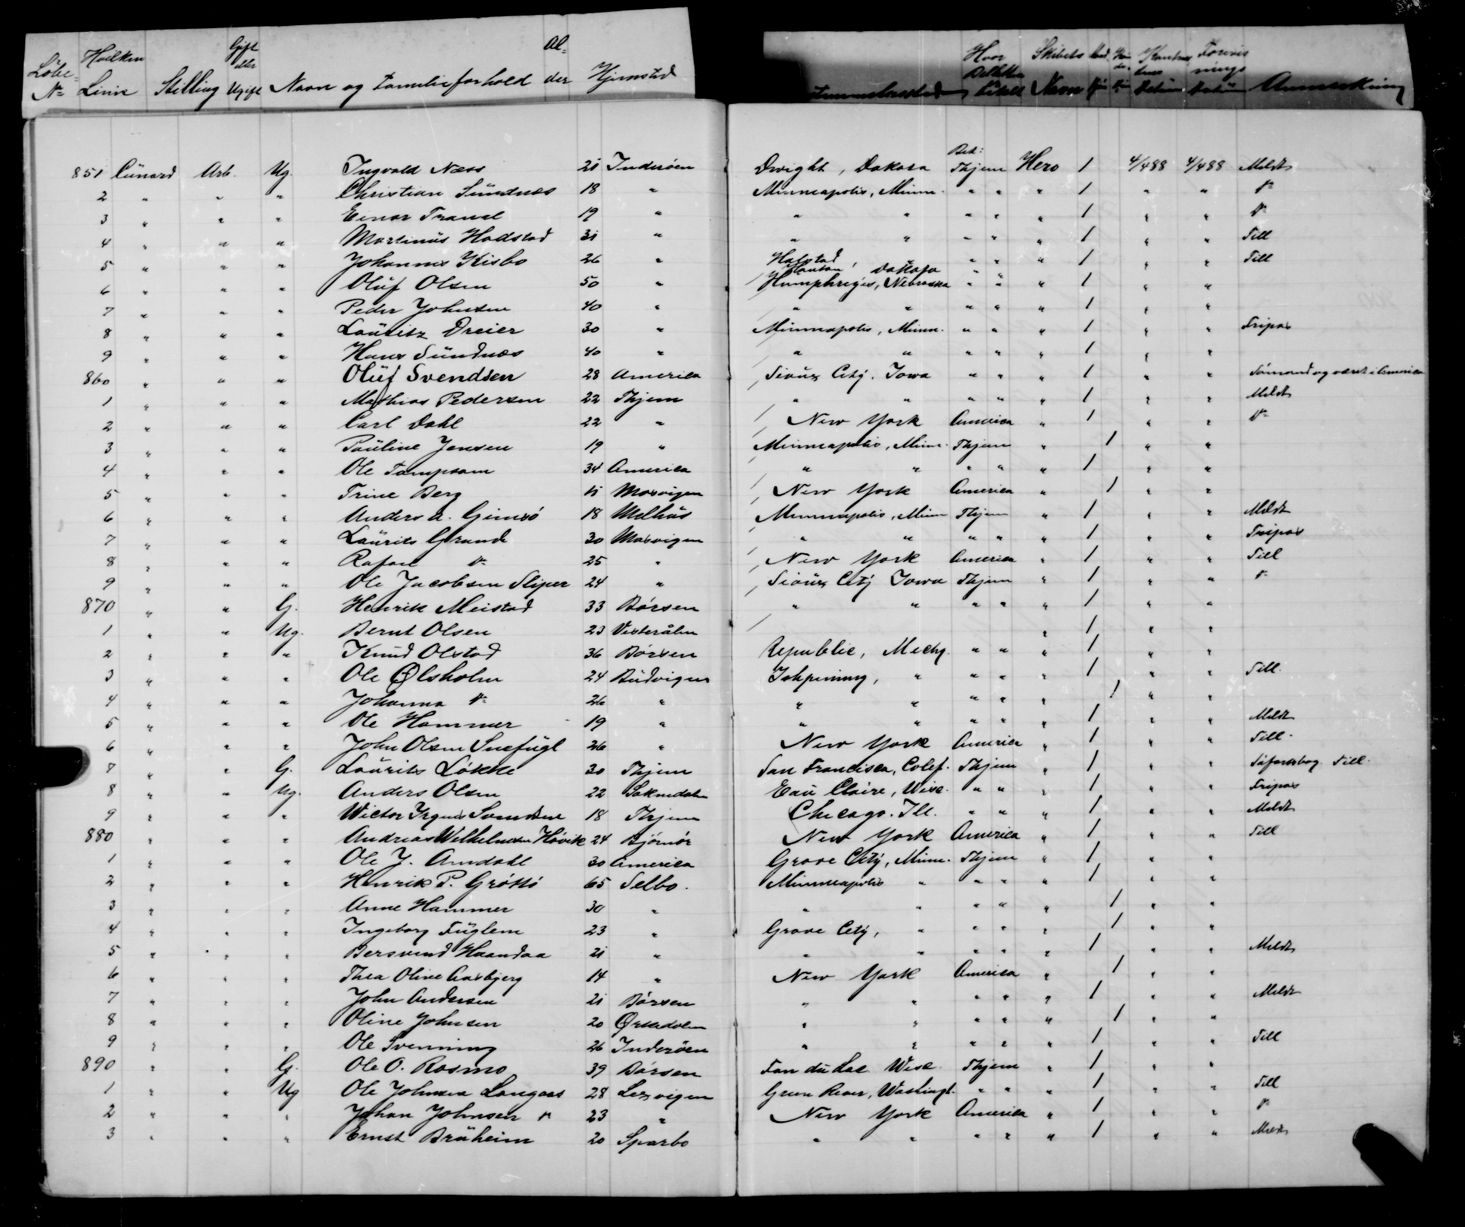 Löbe No Hvilken Linie Stilling Gift eller Ugift Navn og Familieforhold Alder Hjemsted Hvor Billetten betalt Skibets Navn Anmærkning
851 Cunard Arb. Ug. Ingvald Næss 21 Inderöen Dwight, Dakota Bet: Thjem Hero 1 4/488 4/488 Meldt
2 " " " Christian Sundnæs 18 " Minneapolis, Minn. " " " 1 " "
3 " " " Einar Tranel 19 " " " " " " 1 " "
4 " " " Martinus Hodstad 31 " " " " " " 1 " " Till
5 " " " Johannes Kisbo 26 " Dakota " " " 1 " " Till
6 " " " Oluf Olsen 50 " Humphreyes, Nebraska " " " 1 " "
7 " " " Peder Johnsen 40 " " " " " " 1 " "
8 " " " Lauritz Dreier 30 " Minneapolis, Minn. " " " 1 " " Fripas
9 " " " Hans Sundnæs 40 " " " " " " 1 " "
860 " " " Oluf Svendsen 28 America Sioux City. Iowa " " " 1 " "
1 " " " Mathias Pedersen 22 Thjem " " " " " 1 " " Meldt
2 " " " Carl Dahl 22 " New York America " 1 " "
3 " " " Pauline Jensen 19 " Minneapolis, Minn. Thjem " 1 " "
4 " " " Ole Tampsam 34 America " " " " " 1 " "
5 " " " Trine Berg Mosvigen New York America " 1 " "
6 " " " Anders A. Gimsö 18 Melhus Minneapolis, Minn Thjem " 1 " " Meldt
7 " " " Laurits Grande 30 Mosvigen " " " " " 1 " " Fripas
8 " " " Rafael 25 " New York America " 1 " " Till
9 " " " Ole Jacobsen Sliper 24 " Sioux City Iowa Thjem " 1 " "
870 " " G. Henrik Meistad 33 Börsen " " " " " 1 " "
1 " " Ug. Bernt Olsen 23 Vesterålen " 1 " "
2 " " " Knud Olstad 36 Börsen Republic, Michg. " " " 1 " "
3 " " " Ole Ølsholm 24 Budvigen Ishpiming, " " " " 1 " " Till
4 " " " Johanna 26 " " " " " " 1 " "
5 " " " Ole Hammer 19 " " " " " " 1 " " Meldt
6 " " " John Olsen Snefugl 26 " New York America " 1 " " Till.
7 " " G. Laurits Løkke 30 Thjem San Francisco, Calif. Thjem " 1 " " Till
8 " " Ug. Anders Olsen 22 Soknedalen Eau Claire, Wisc. " " " 1 " " Fripas
9 " " " Wictor 18 Thjem Chicago. Ill. " " " 1 " " Meldt
880 " " " Andreas Wilhelmsen Hövik 24 Björnör New York America " 1 " " Till
1 " " " Ole J. Amdahl 30 America Grove City, Minn. Thjem " 1 " "
2 " " " Henrik P. Gröttö 65 Selbo. Minneapolis " " " " 1 " "
3 " " " Anne Hammer 30 " " " " " " 1 " "
4 " " " Ingeborg Fuglem 23 " Grove City, " " " " 1 " "
5 " " " Bersvend Haandaa 21 " " " " " " 1 " " Meldt
6 " " " Thea Oline Aasbjerg 14 " New York America " 1 " "
7 " " " John Andersen 21 Börsen " " " " " 1 " " Meldt
8 " " " Oline Johnsen 20 Ørkedalen " " " " " 1 " "
9 " " " Ole Svenning 26 Inderöen " " " " " 1 " " Till
890 " " G. Ole O. Rosmo 39 Börsen Fon du Lac Wisc. Thjem " 1 " "
1 " " Ug Ole Johnsen Langaas 28 Lexvigen Green River, Washingt. " " " 1 " " Till
2 " " " Johan Johnsen 23 " New York America " 1 " "
3 " " " Ernst Bräheim 20 Sparbo " " " " " 1 " " Meldt